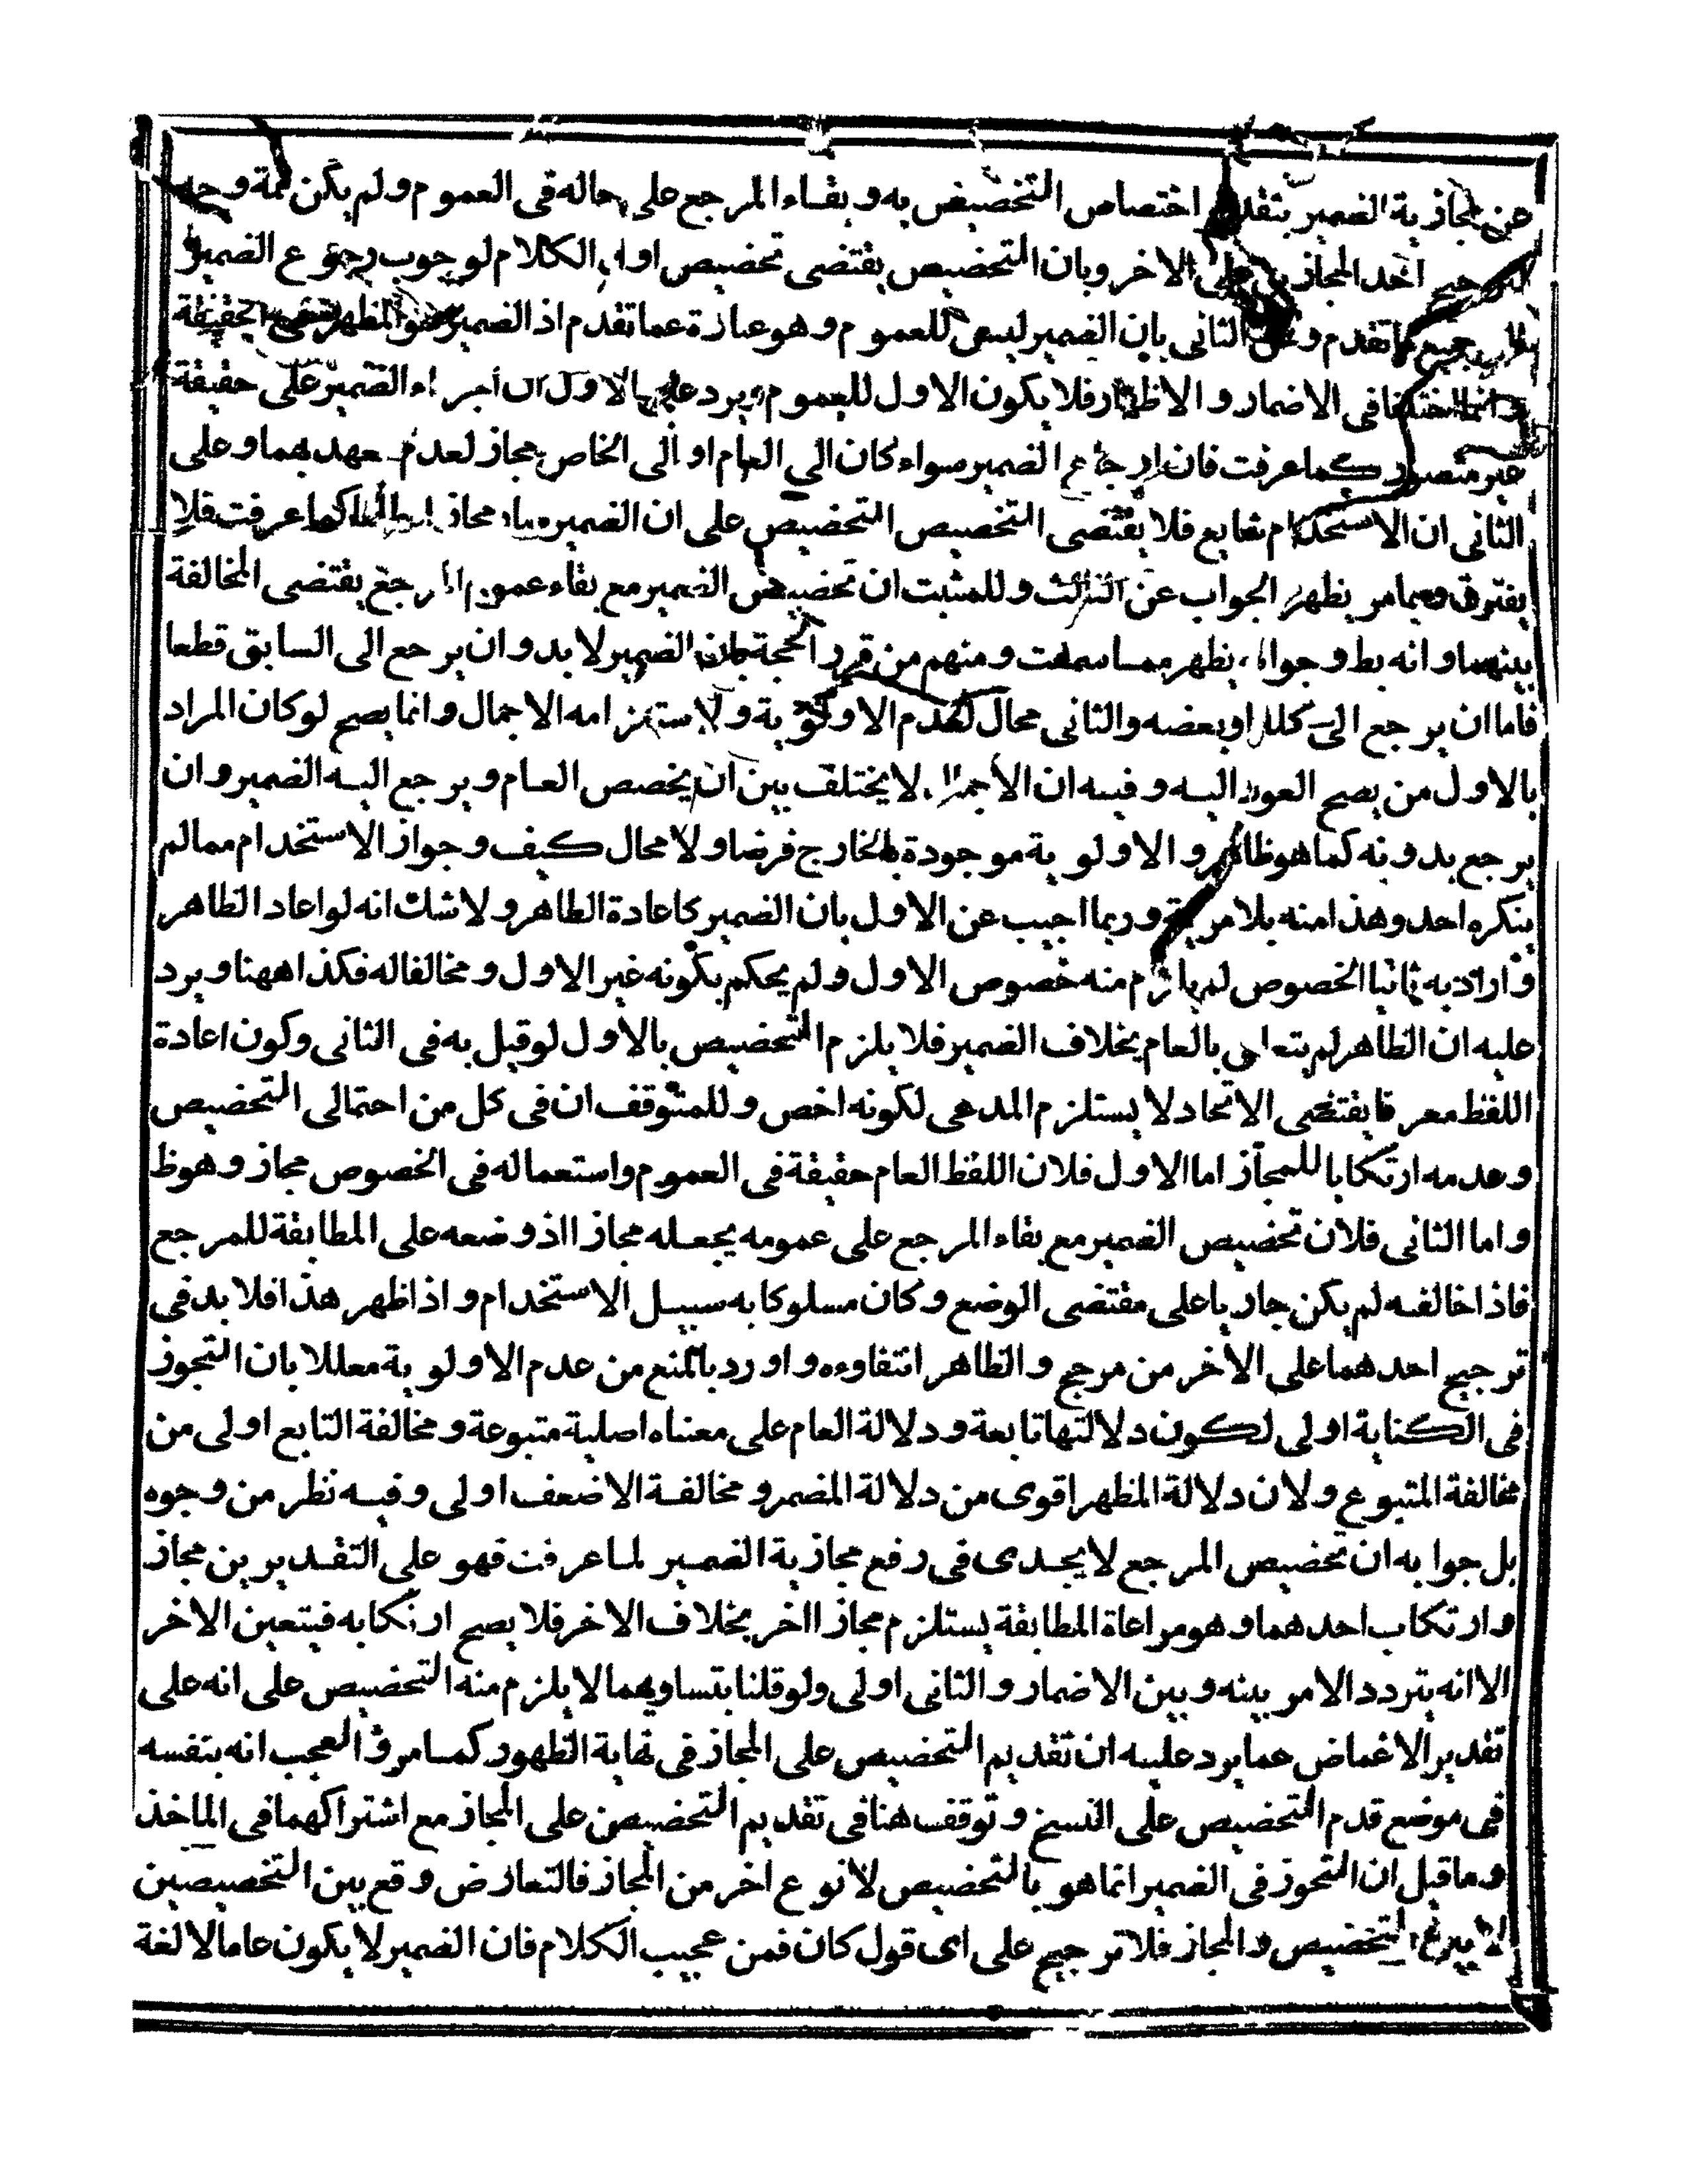 عن مجازية الضمير بتقدير اختصاص التخصيص به وبقاء المرجع على حاله فى العموم ولم يكن ثمة وجه
الترجيح احد المجازين على الاخر وبان التخصيص يقتضى تخصيص اول الكلام لوجوب رجوع الضمير
الى جميع ما تقدم وعن الثانى بان الضمير ليس للعموم وهو عبارة عما تقدم اذ الضمير هو المظهر الحقيقة
وانما اختلفا فى الاضمار والاظهار فلا يكون الاول للعموم ويرد على الاول ان اجراء الضمير على حقيقة
غير متصور كما عرفت فان ارجاع الضمير سواء كان الى العام او الى الخاص مجاز لعدم عهد بهما وعلى
الثانى ان الاستخدام شايع فلا يقتضى التخصيص التخصيص على ان الضمير مجاز كما عرفت فلا
يفترق ومما مر يظهر الجواب عن الثالث وللمثبت ان تخصيص الضمير مع بقاء عموم المرجع يقتضى المخالفة
بينهما وانه بط وجوابه يظهر مما سمعت ومنهم من قرر الحجة بان الضمير لا بد وان يرجع الى السابق قطعا
فاما ان يرجع الى كله او بعضه والثانى محال لعدم الاولوية ولاستلزامه الاجمال وانما يصح لو كان المراد
بالاول من يصح العود اليه وفيه ان الأجمال لا يختلف بين ان يخصص العام ويرجع اليه الضمير وان
يرجع بدونه كما هو ظاهر والاولوية موجودة بالخارج فرضا ولا محال كيف وجواز الاستخدام مما لم
ينكره احد وهذا منه بلا مرية وربما اجيب عن الاول بان الضمير كاعادة الظاهر ولا شك انه لو اعاد الظاهر
واراد به ثانيا الخصوص لم يلزم منه خصوص الاول ولم يحكم بكونه غير الاول ومخالفا له فكذا ههنا ويرد
عليه ان الظاهر لم يتعلق بالعام بخلاف الضمير فلا يلزم التخصيص بالأول لو قيل به فى الثانى وكون اعادة
اللفظ معرفا يقتضى الاتحاد لا يستلزم المدعى لكونه اخص وللمتوقف ان فى كل من احتمالى التخصيص
وعدمه ارتكابا للمجاز اما الاول فلان اللفظ العام حقيقة فى العموم واستعماله فى الخصوص مجاز وهو ظ
واما الثانى فلان تخصيص الضمير مع بقاء المرجع على عمومه يجعله مجازا اذ وضعه على المطابقة للمرجع
فاذا خالفه لم يكن جاريا على مقتضى الوضع وكان مسلوكا به سبيل الاستخدام واذا ظهر هذا فلا بد فى
ترجيح احدهما على الأخر من مرجح والظاهر انتفاوءه واورد بالمنع من عدم الاولوية معللا بان التجوز
فى الكناية اولى لكون دلالتها تابعة ودلالة العام على معناه اصلية متبوعة ومخالفة التابع اولى من
مخالفة المتبوع ولان دلالة المظهر اقوى من دلالة المضمر ومخالفة الاضعف اولى وفيه نظر من وجوه
بل جوابه ان تخصيص المرجع لا يجدى فى رفع مجازية الضمير لما عرفت فهو على التقديرين مجاز
وارتكاب احدهما وهو مراعاة المطابقة يستلزم مجازا اخر بخلاف الاخر فلا يصح ارتكابه فيتعين الاخر
الا انه يتردد الامر بينه وبين الاضمار والثانى اولى ولو قلنا بتساويهما لا يلزم منه التخصيص على انه على
تقدير الاغماض عما يرد عليه ان تقديم التخصيص على المجاز فى نهاية الظهور كما مر والعجب انه بنفسه
فى موضع قدم التخصيص على النسخ وتوقف هنا فى تقديم التخصيص على المجاز مع اشتراكهما فى الماخذ
وما قيل ان التجوز فى الضمير انما هو بالتخصيص لا نوع اخر من المجاز فالتعارض وقع بين التخصيصين
لا بين التخصيص والمجاز فلا ترجيح على اى قول كان فمن عجيب الكلام فان الضمير لا يكون عاما لا لغة